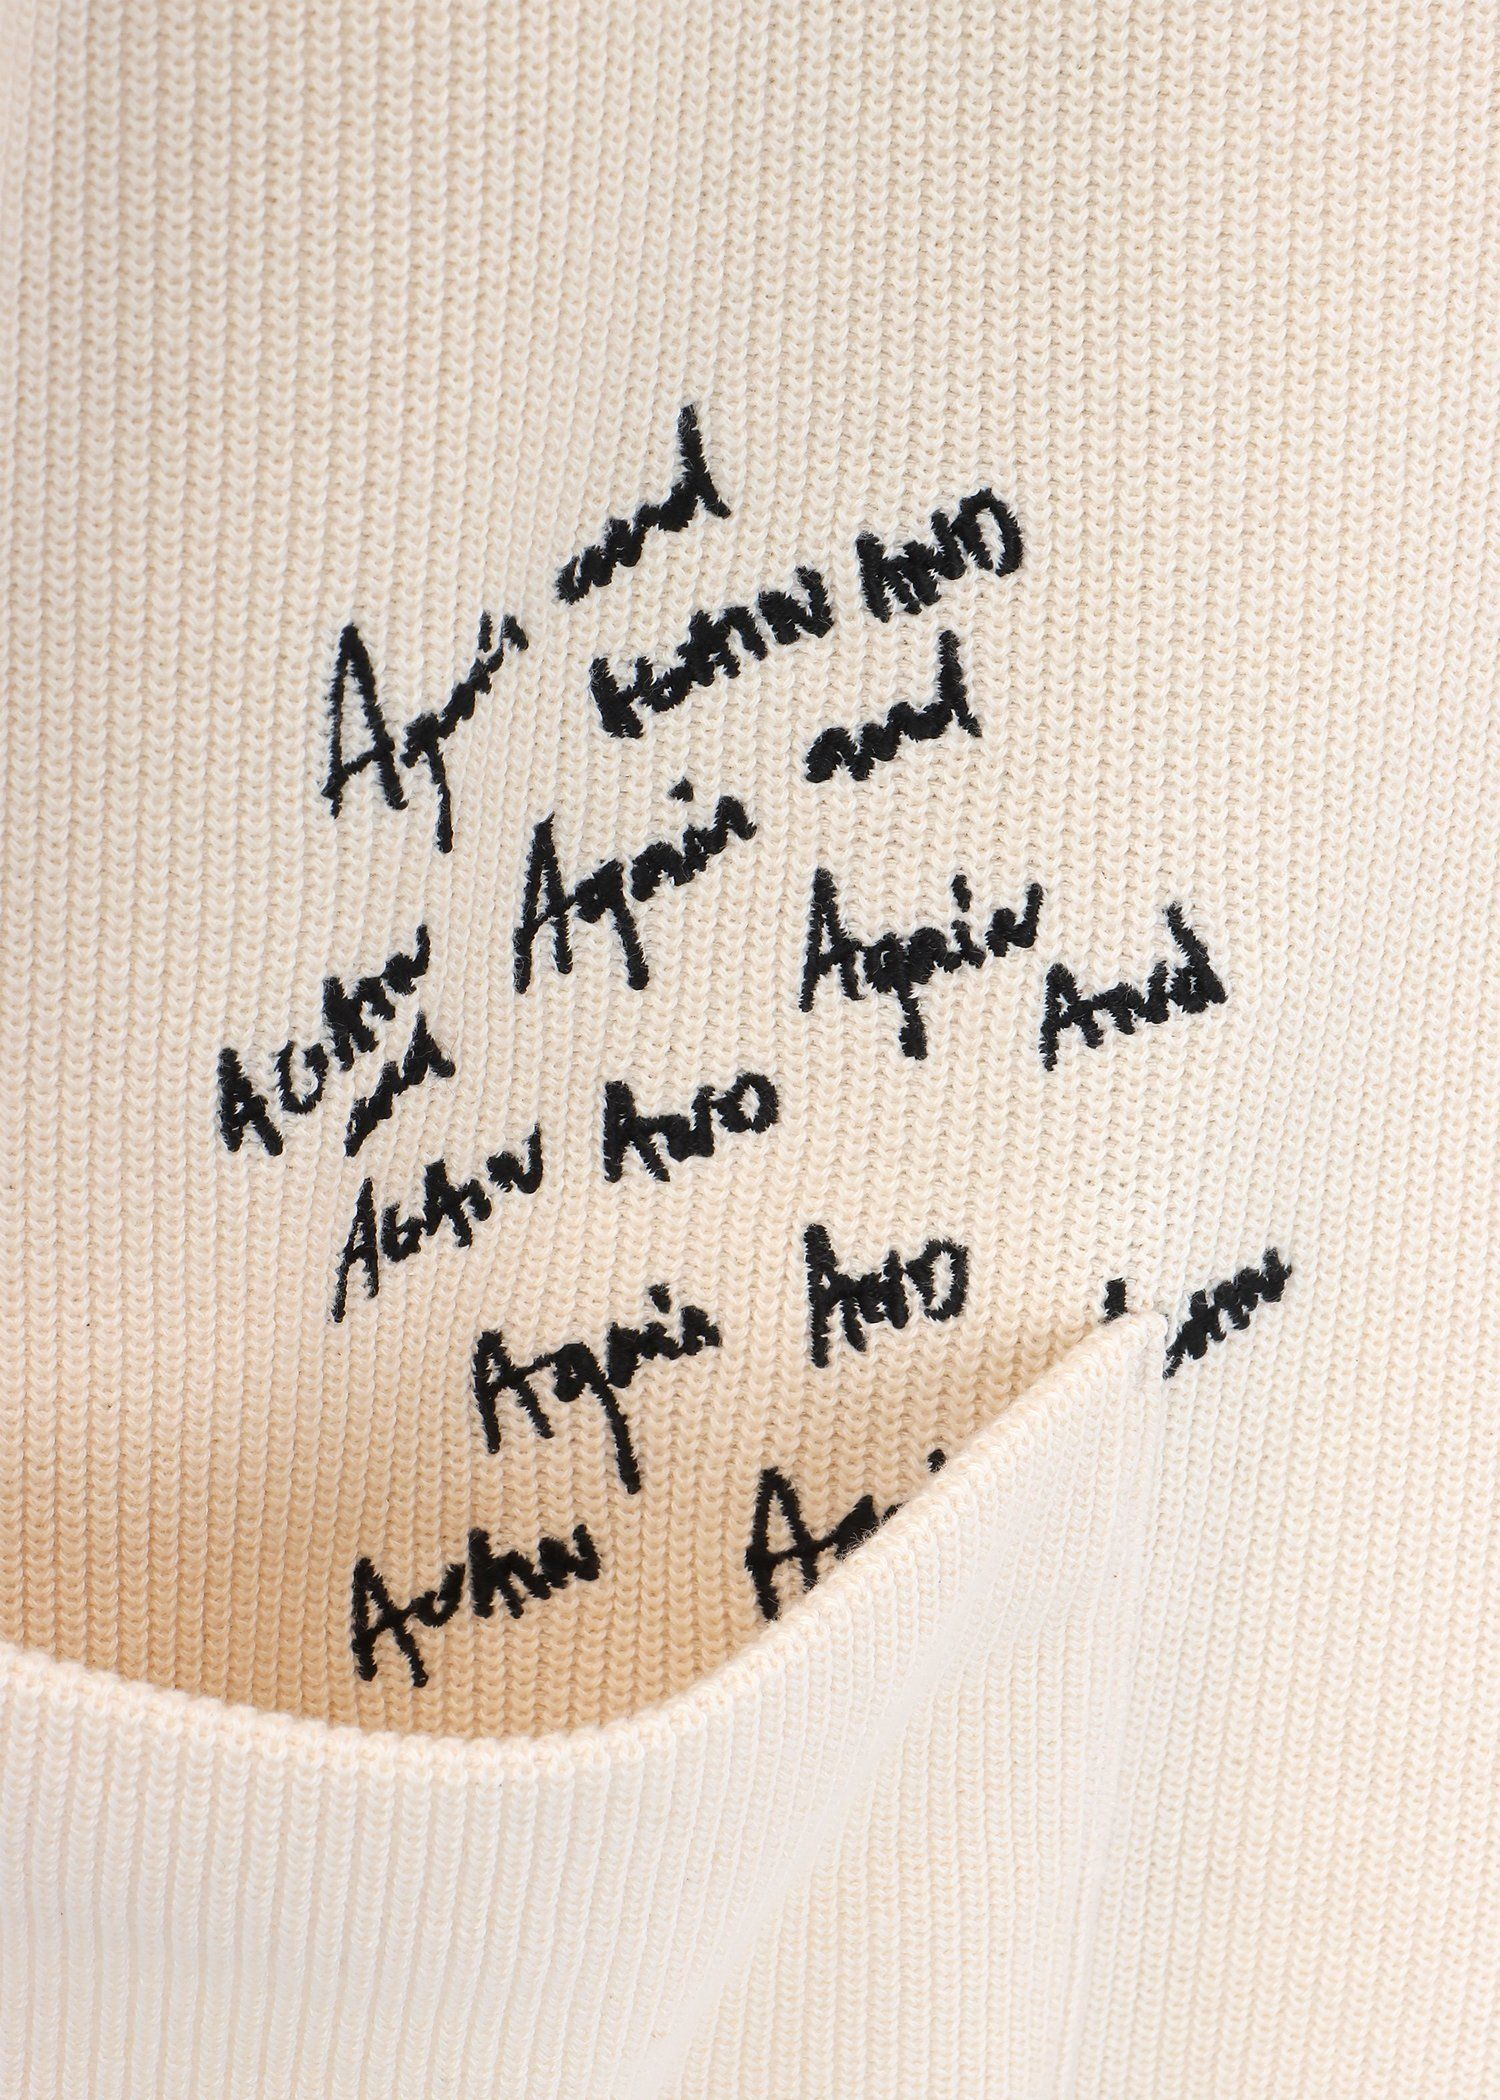 Again and
AGAIN AND
Again and
Again And
AGAIN and
AGAIN AND
Again AND
AGAIN